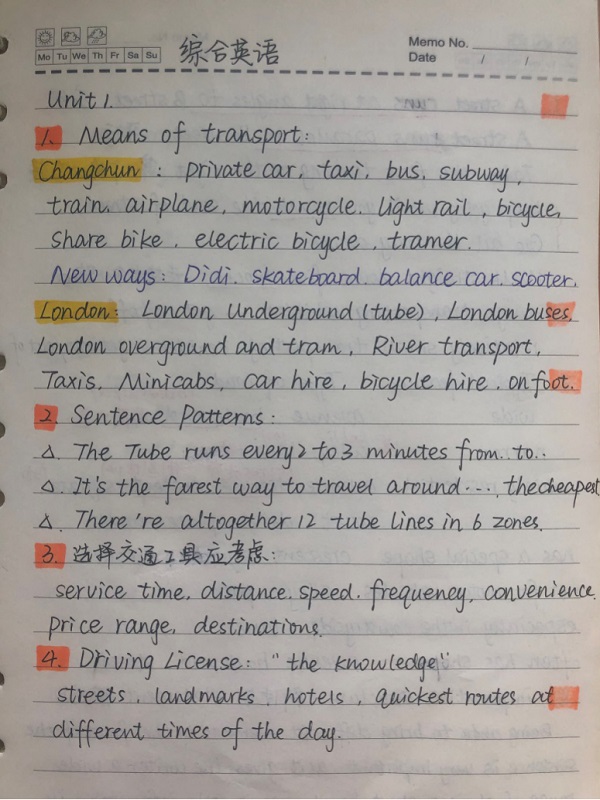 综合英语
Memo No.
Mo Tu We Th Fr Sa Su
Date / /
Unit 1.
1. Means of transport:
Changchun: private car, taxi, bus, subway,
train, airplane, motorcycle, light rail, bicycle,
share bike, electric bicycle, tramer.
New ways: Didi, skateboard, balance car, scooter.
London: London Underground (tube), London buses,
London overground and tram, River transport,
Taxis, Minicabs, car hire, bicycle hire, on foot.
2. Sentence Patterns:
△. The Tube runs every 2 to 3 minutes from..to..
△. It's the farest way to travel around···, the cheapest
△. There're altogether 12 tube lines in 6 zones.
3. 选择交通工具应考虑:
service time, distance, speed, frequency, convenience,
price range, destinations.
4. Driving License: "the knowledge"
streets, landmarks, hotels, quickest routes at
different times of the day.